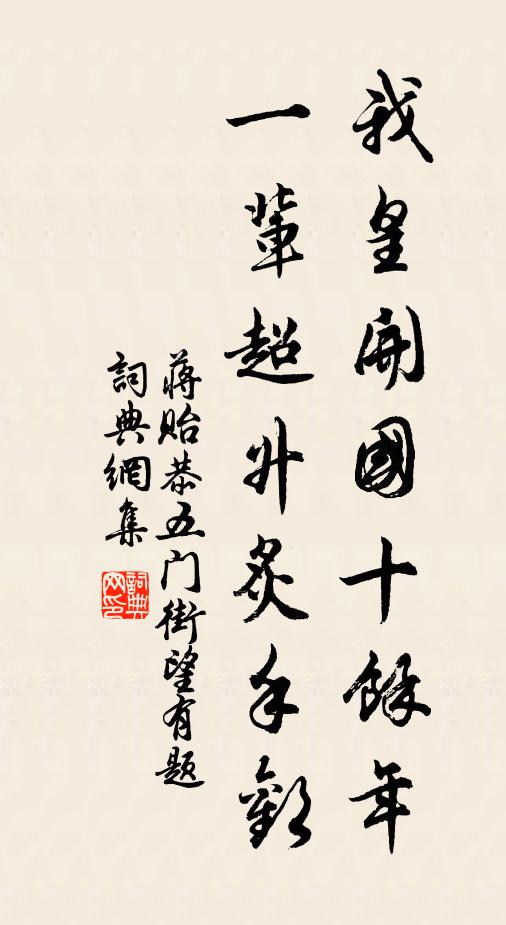 我皇開國十餘年
一輩超升炙手歡
蔣貽恭五门街望有题
詞典網集
詞典网印